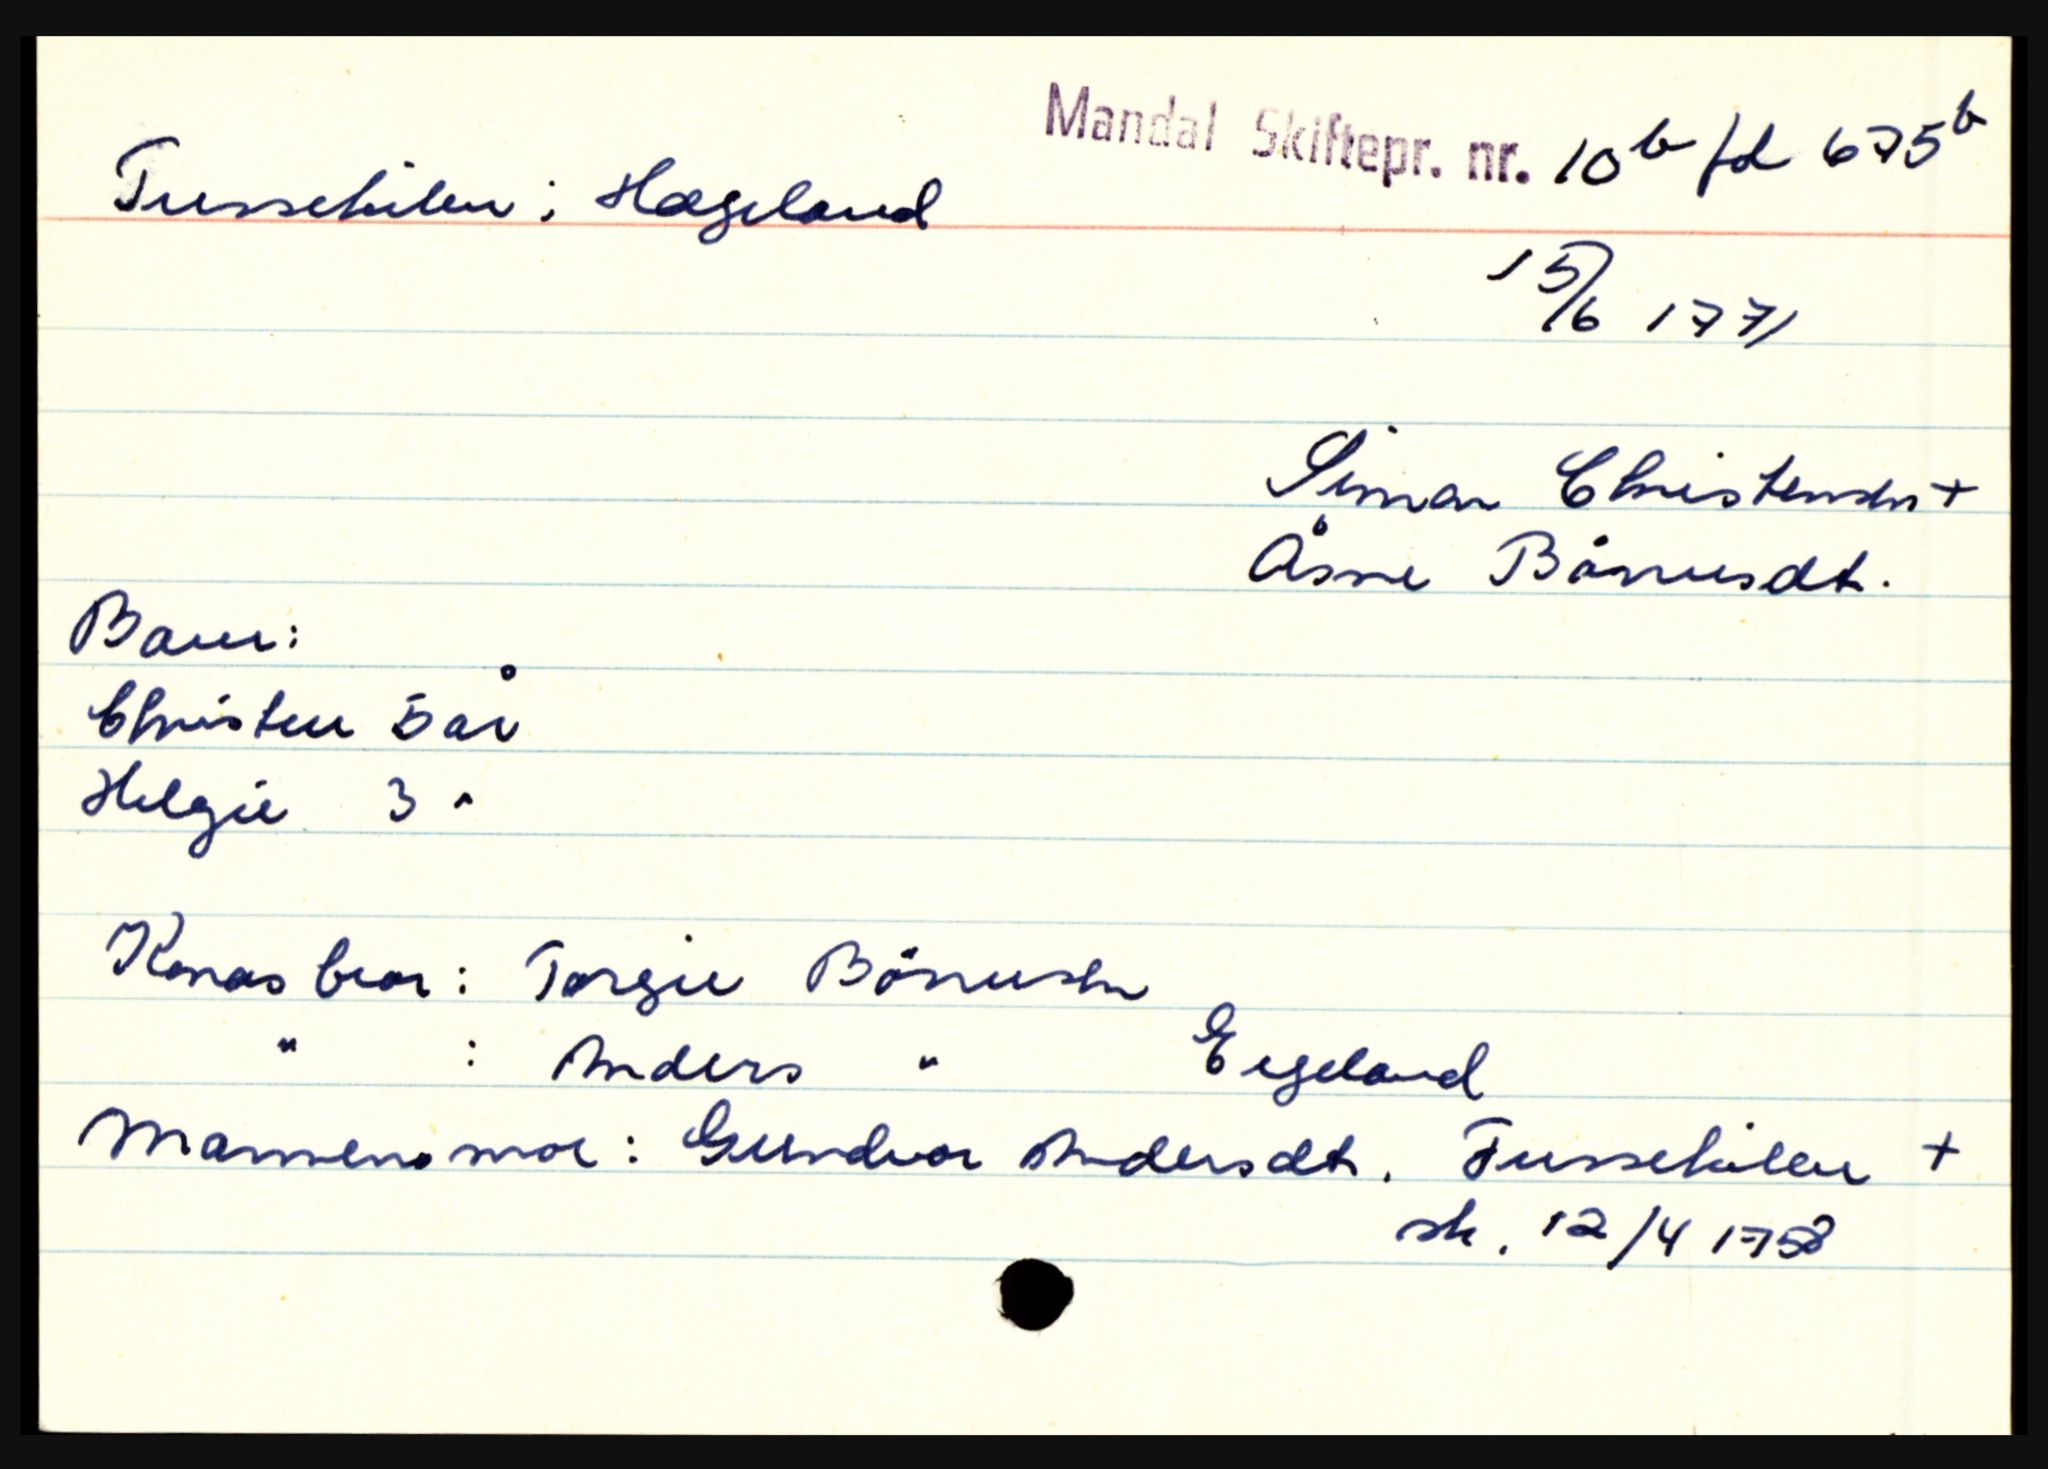 Mandal Skiftepr. nr. 10b fol 675b
Tussekilen i Hægeland
15/6 1771
Simon Christensn +
Åsne Bånusdt.
Barn:
Christen 5 år
Helgie 3 "
Konas bror: Torgie Bånusn
" : Anders " Eigeland
Mannens mor: Gundvor Andersdt. Tussekilen +
sk. 12/4 1758